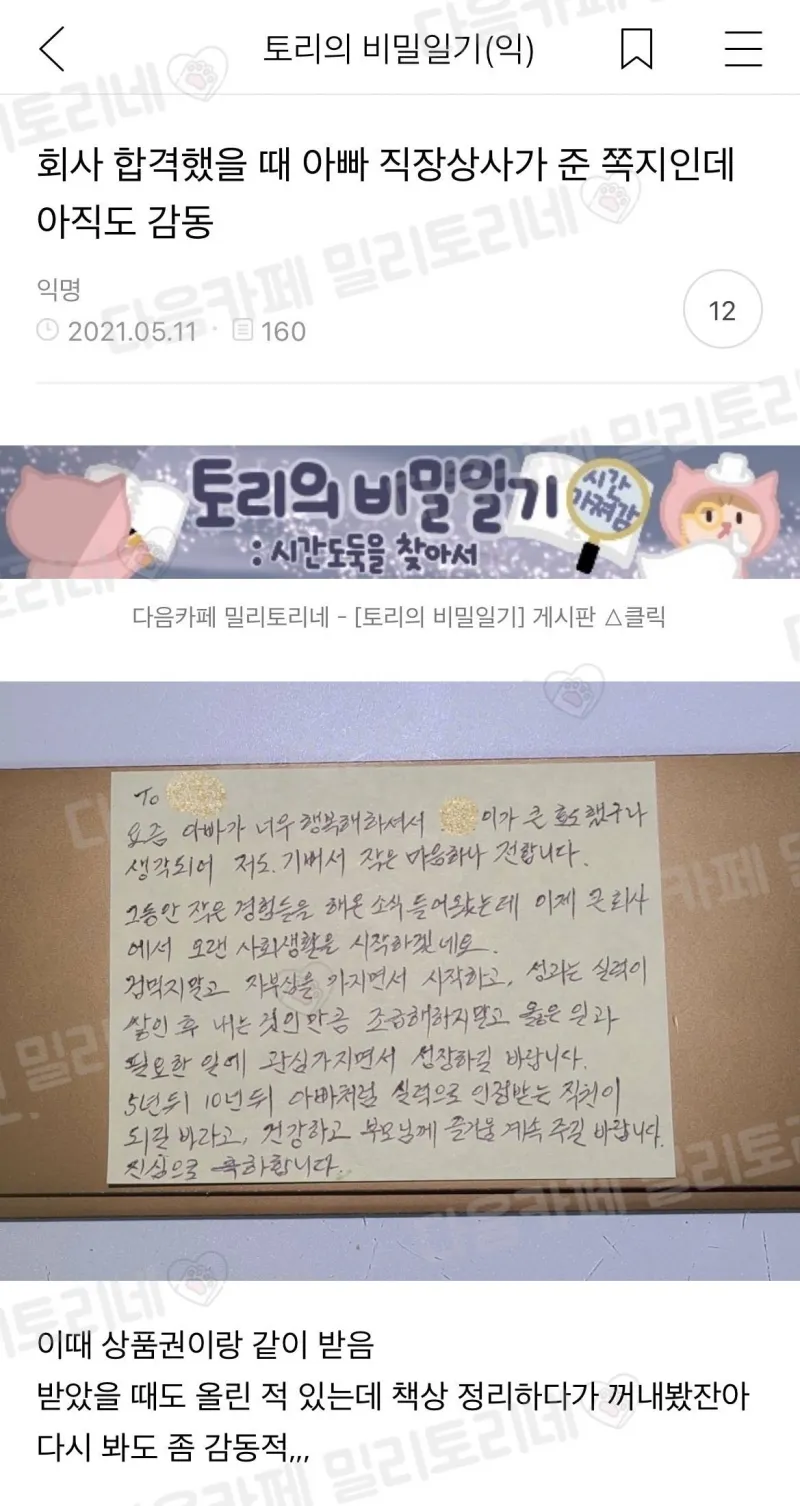 토리의 비밀일기(익)
회사 합격했을 때 아빠 직장상사가 준 쪽지인데
아직도 감동
익명
2021.05.11 · 160
12
토리의 비밀일기
시간
가져감
:시간도둑을 찾아서
다음카페 밀리토리네 - [토리의 비밀일기] 게시판 △클릭
To
요즘 아빠가 너무 행복해하셔서 이가 큰 효도했구나
생각되어 저도.기뻐서 작은 마음하나 전합니다.
그동안 작은 경험들을 해온 소식 들어왔는데 이제 큰회사
에서 오랜 사회생활을 시작하겠네요.
겁먹지말고 자부심을 가지면서 시작하고, 성과는 실력이
쌓인 후 내는 것인만큼 조급해하지말고 옳은 일과
필요한 일에 관심가지면서 성장하길 바랍니다.
5년뒤 10년뒤 아빠처럼 실력으로 인정받는 직원이
되길 바라고, 건강하고 부모님께 즐거움 계속 주길 바랍니다.
진심으로 축하합니다.
이때 상품권이랑 같이 받음
받았을 때도 올린 적 있는데 책상 정리하다가 꺼내봤잔아
다시 봐도 좀 감동적,,,
다음카페 밀리토리네